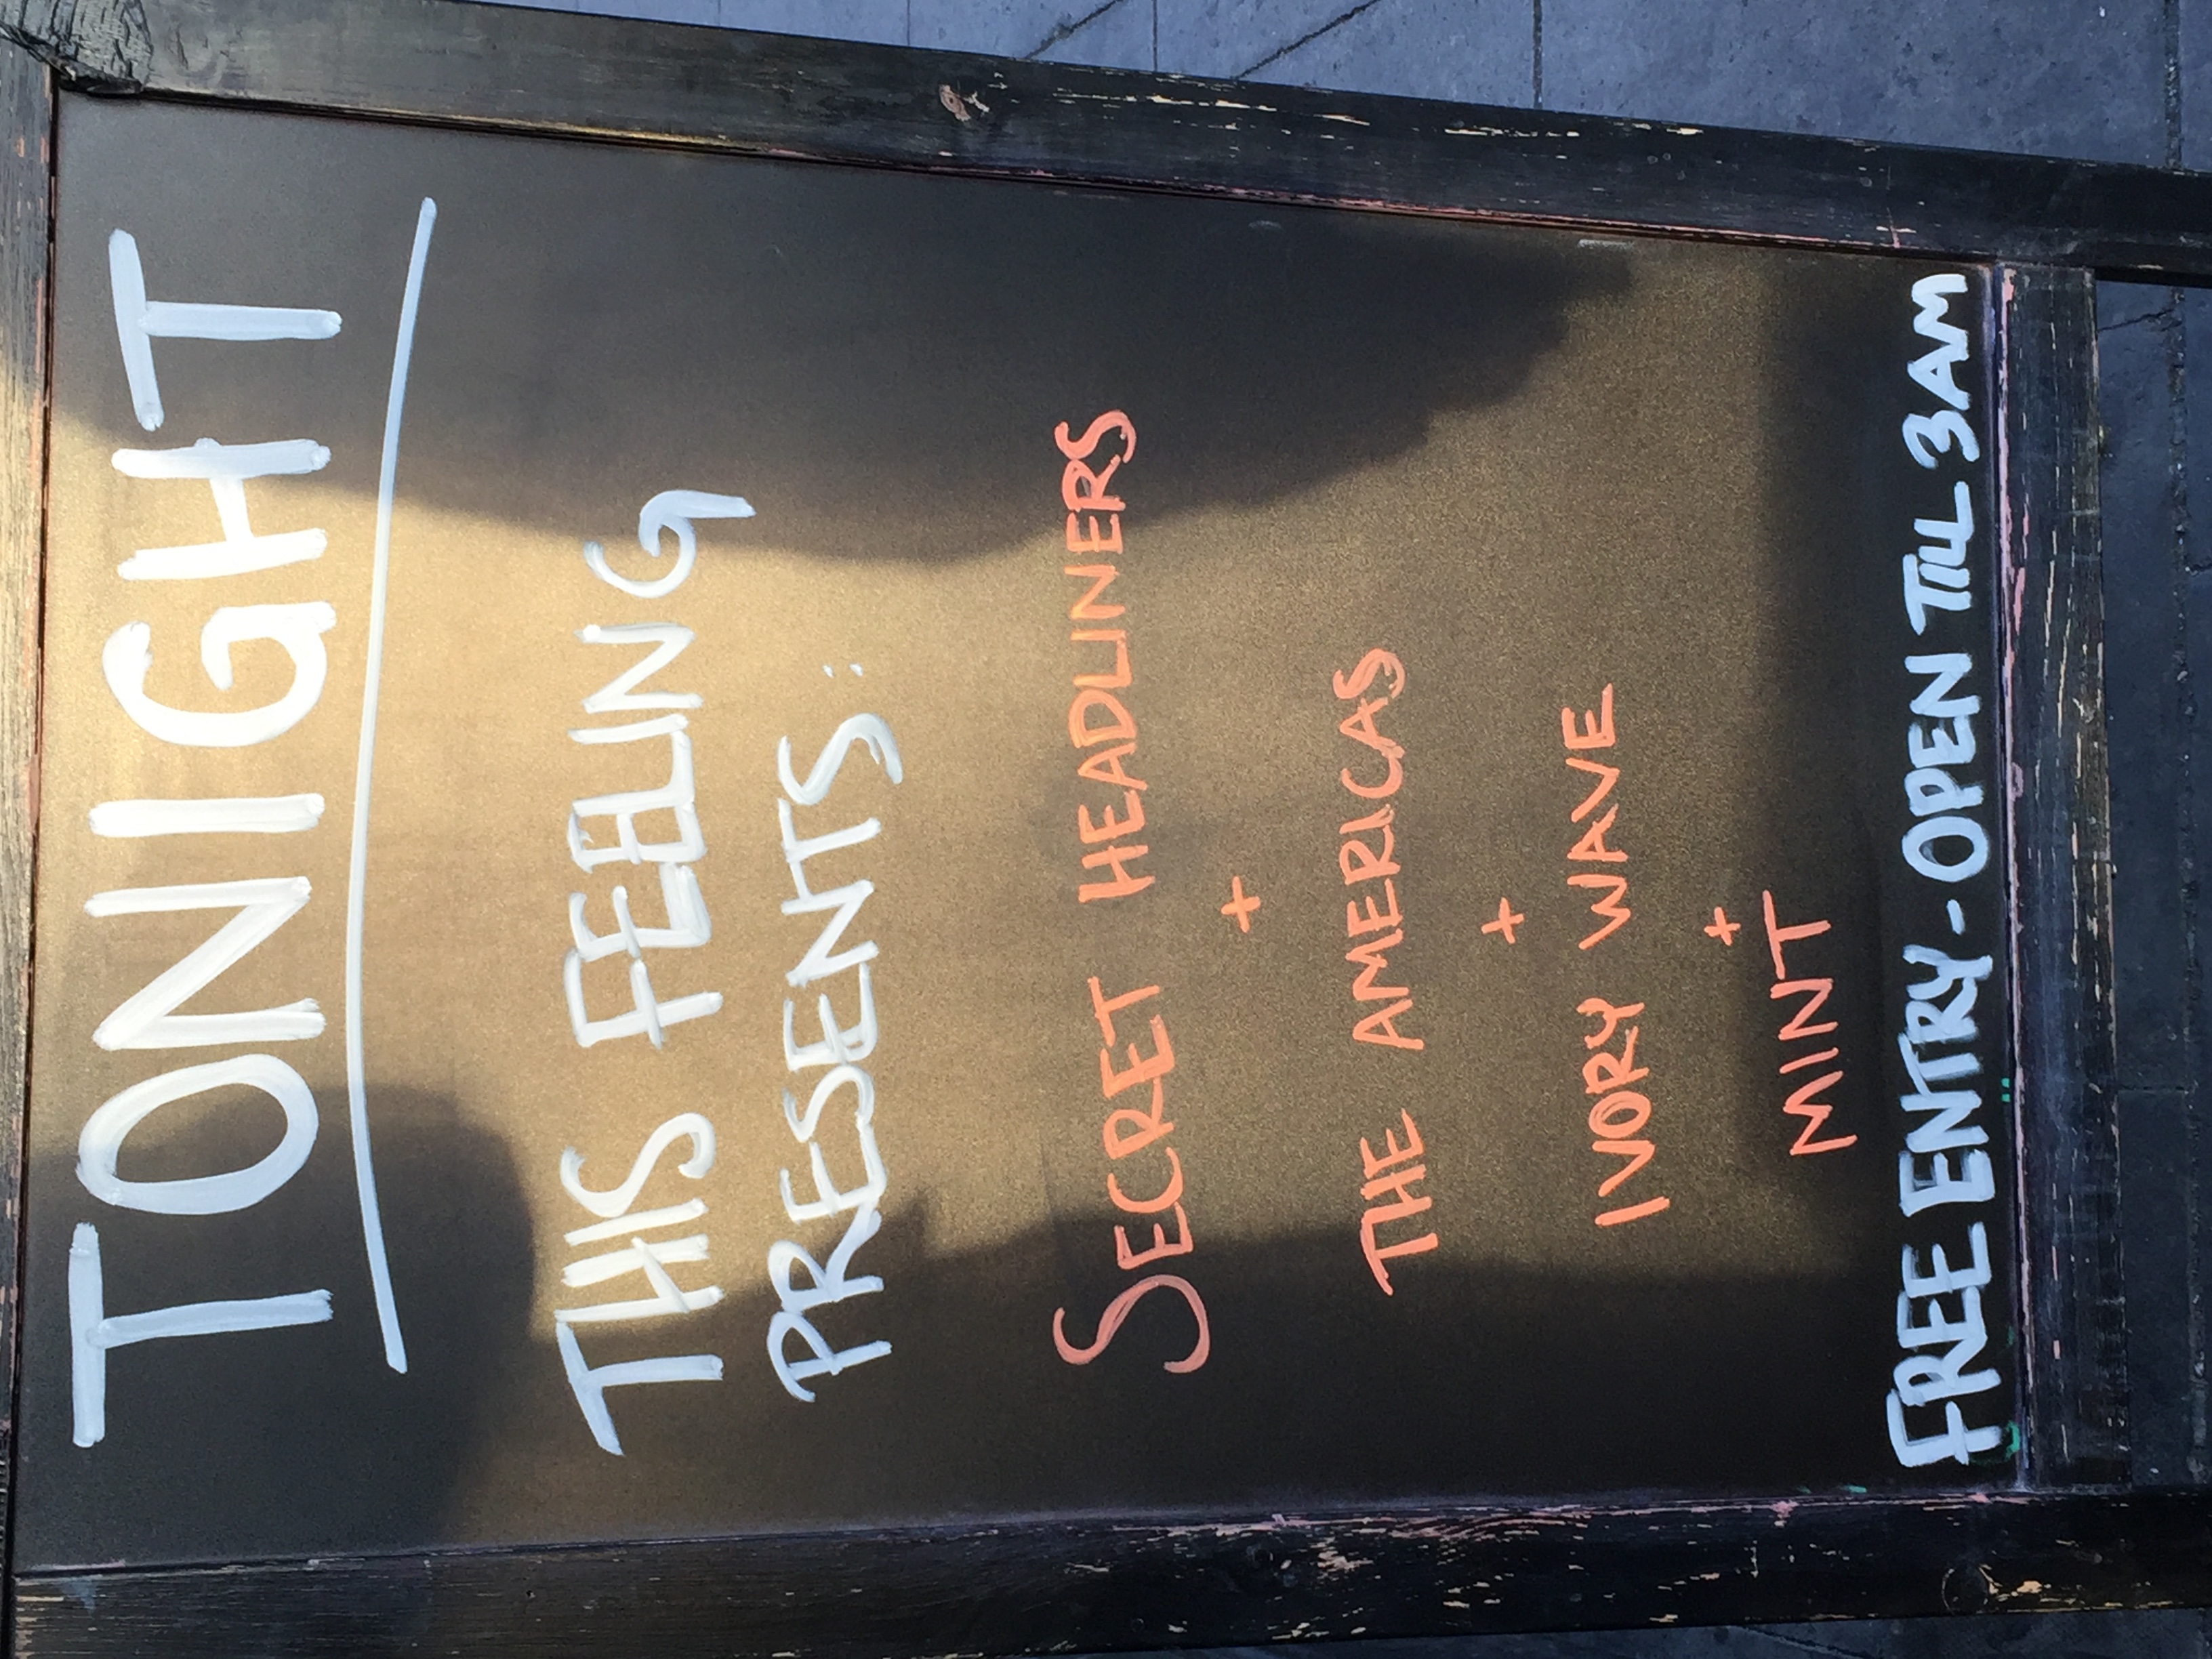 TONIGHT
THIS FEELING
PRESENTS:
SECRET HEADLINERS
+
THE AMERICAS
+
IVORY WAVE
+
MINT
FREE ENTRY - OPEN TILL 3AM